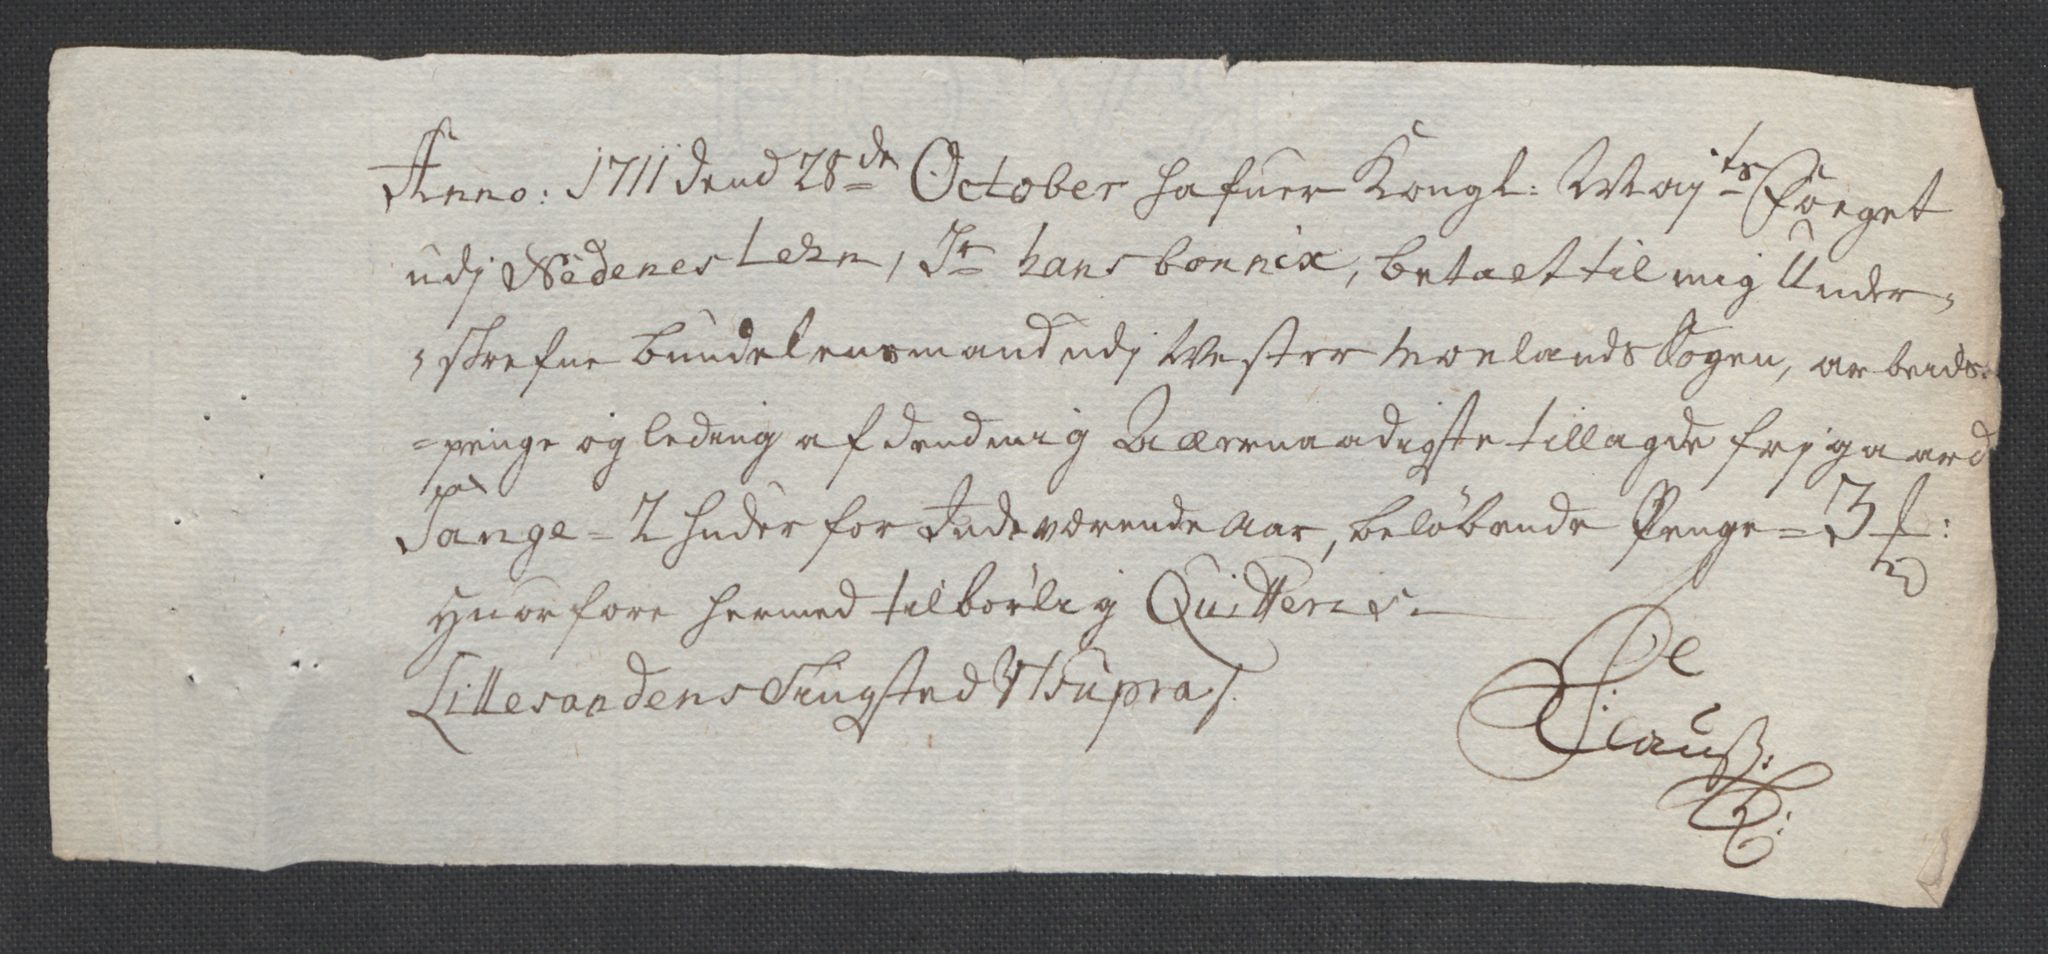 Anno: 1711 dend 28de October hafuer Kongl: Maÿts Foeget
udj Nedenes Lehn, Sr hans bonnix, betaelt til mig Under-
skrefne bundelensmand udj Vester Moelands Sogen, arbeids-
=penge og leding af dend mig aldernaadigste tillagde frj gaard
Tange = 2 huder for Indeværende Aar, beløbende Penge = 3
Huorfore hermed tilbørlig Quitteris.
Lillesandens Tingsted Vtsupra